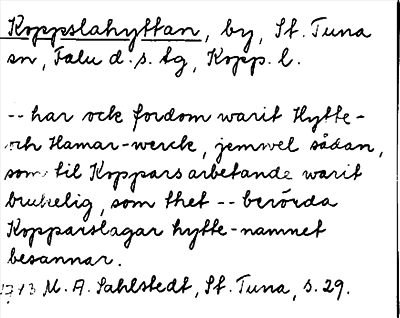 Kopp­slahyttan, by, St. Tuna
sn, Falu d. s. tg, Kopp. l.
-- har ock fordom warit Hytte-
och Hamar-werck, jemwel sådan,
som til Koppars arbetande warit
brukelig, som thet -- berörda
Kopparslagar hytte-namnet
besannar.
1743 M. A. Sahlstedt, St. Tuna, s. 29.